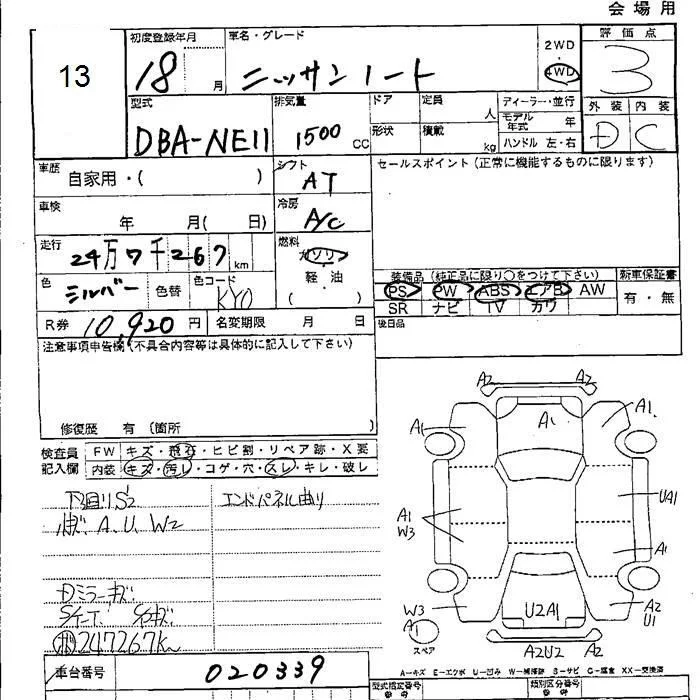 会場用
13
初度登録年月
18 月
車名・グレード
ニッサン ノート
2WD
4WD
評価点
3
外装 内装
D C
型式
DBA-NE11
排気量
1500 CC
ドア
形状
定員 人
積載 kg
ディーラー・並行
モデル年式 年
ハンドル 左・右
車歴
自家用・( )
シフト
AT
セールスポイント(正常に機能するものに限ります)
車検
年 月( 日)
冷房
A/C
走行
24万7千267 km
燃料
ガソリン
軽・油
( )
色
シルバー
色替
色コード
KY0
装備品(純正品に限り○をつけて下さい)
新車保証書
PS PW ABS エアB AW
SR ナビ TV カワ
有・無
R券 10,920 円
名変期限 月 日
後日品
注意事項申告欄(不具合内容等は具体的に記入して下さい)
修復歴 有(箇所 )
検査員
記入欄
FW キズ・飛石・ヒビ割・リペア跡・X要
内装 キズ・汚レ・コゲ・穴・スレ・キレ・破レ
下回りS2
A、U、W2
エンドパネル曲り
Dミラーキズ
247267km
A2 A2
A1
A1
A1
UA1
A1
W3
A1
W3
A1
U2A1
A2
U1
スペア
A2U2 A2
A-キズ E-エクボ U-凹み W-補修跡 S-サビ C-腐食 XX-交換済
車台番号
020339
型式指定番号
類別区分番号